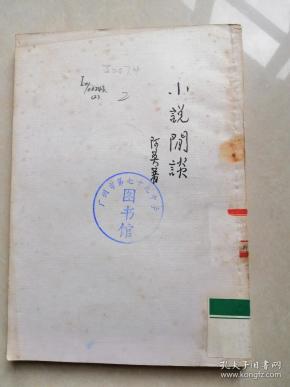 小說閒談
阿英著
2
广州市第七十九中学
图书馆
孔夫子旧书网